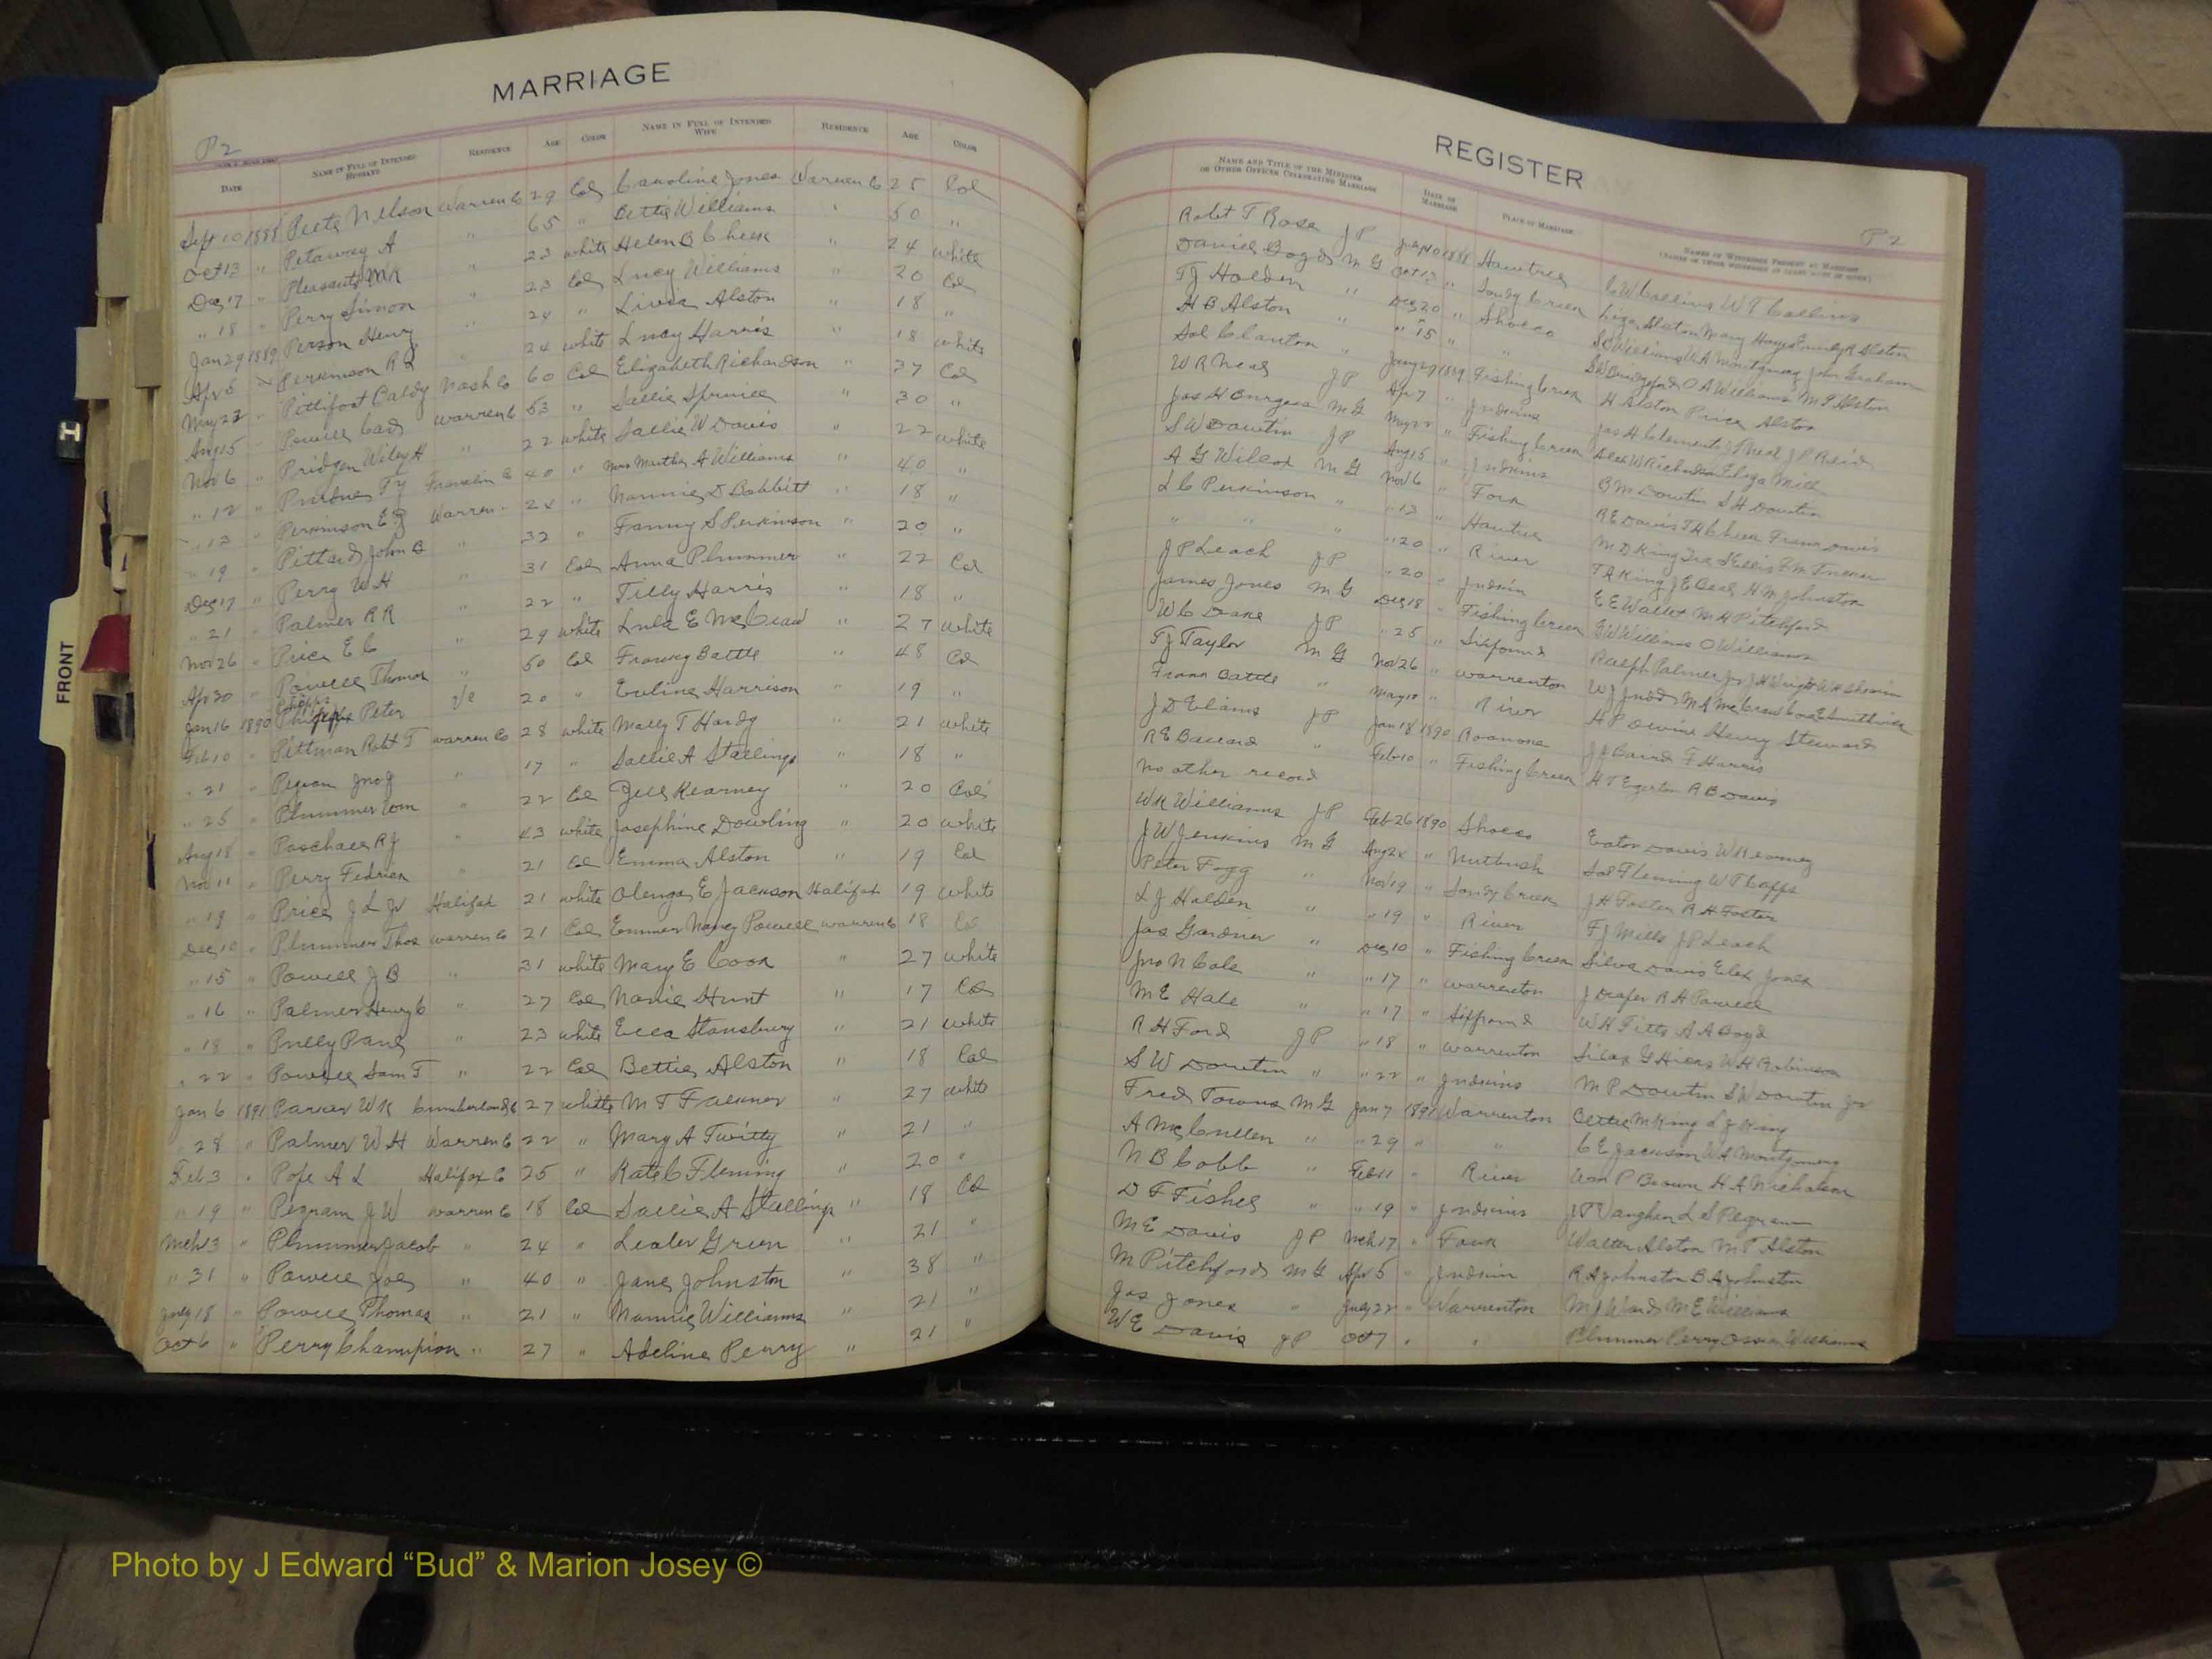 MARRIAGE
P 2
DATE NAME IN FULL OF INTENDED HUSBAND RESIDENCE AGE COLOR NAME IN FULL OF INTENDED WIFE RESIDENCE AGE COLOR
Sept 10 1888 Peete Nelson Warren Co 29 Col Caroline Jones Warren Co 25 Col
Oct 13 " Petaway A " 65 " Bettie Williams " 50 "
Dec 17 " Pleasants " 23 white Helen B Cheek " 24 white
" 18 " Perry Simon " 23 Col Lucy Williams " 20 Col
Jan 29 1889 Person Henry " 24 " Alston " 18 "
Apr 5 Perkinson R " 24 white Lucy Harris " 18 white
May 22 " Pittifoot Nash Co 60 Col Elizabeth Richardson " 37 Col
Aug 15 Powell Warren Co 53 " Sallie Spruill " 30 "
Nov 6 " Pridgen Wiley H " 22 white Sallie W Davis " 22 white
" 12 " Franklin Co 40 " Mrs Martha A Williams " 40 "
" 13 " Perkinson E Warren 24 " Nannie D Bobbitt " 18 "
" 19 " Pittard John B " 32 " Fanny S Perkinson " 20 "
Dec 17 " Perry W H " 31 Col Anna Plummer " 22 Col
" 21 " Palmer R R " 22 " Tilly Harris " 18 "
Nov 26 " Price E C " 29 white Lula E " 27 white
Apr 30 " Powell Thomas " 50 Col Battle " 48 Col
Jan 16 1890 Peter Va 20 " Evline Harrison " 19 "
Feb 10 " Pittman Robt T Warren Co 28 white Mary T Hardy " 21 white
" 21 " Pegram Jno J " 17 " Sallie A Stallings " 18 "
" 25 " Plummer Wm " 22 Col Kearney " 20 Col
Aug 18 " Paschall R J " 43 white Josephine Dowling " 20 white
Nov 11 " Perry " 21 Col Emma Alston " 19 Col
" 19 " Price J L Jr Halifax 21 white E Jackson Halifax 19 white
Dec 10 " Plummer Thos Warren Co 21 Col Nancy Powell Warren Co 18 Col
" 15 " Powell J B " 31 white Mary E Cook " 27 white
" 16 " Palmer Henry C " 27 Col Nanie Hunt " 17 Col
" 18 " Pulley Paul " 23 white Ella Stansbury " 21 white
" 22 " Powell Sam T " 22 Col Bettie Alston " 18 Col
Jan 6 1891 Parker W K Cumberland Co 27 white M T Falkner " 27 white
" 28 " Palmer W H Warren Co 22 " Mary A Twitty " 21 "
Feb 3 " Pope A L Halifax Co 25 " Kate C Fleming " 20 "
" 19 " Pegram J W Warren Co 18 Col Sallie A Stallings " 18 Col
Mch 13 " Plummer Jacob " 24 " Green " 21 "
" 31 " Powell Joe " 40 " Jane Johnston " 38 "
July 18 " Powell Thomas " 21 " Nannie Williams " 21 "
Oct 6 " Perry Champion " 27 " Adeline Perry " 21 "
REGISTER
P 2
NAME AND TITLE OF THE MINISTER OR OTHER OFFICER CELEBRATING MARRIAGE DATE OF MARRIAGE PLACE OF MARRIAGE NAMES OF WITNESSES PRESENT AT MARRIAGE
Robt T Rose J P 1888 Hawtree C W Collins W T Collins
Daniel M G Oct 13 " Sandy Creek Alston Mary Alston
T J Holden " Dec 20 " Shocco Williams W A Montgomery John Graham
H B Alston " " 15 " " O A Williams M T Alston
Sol Clanton " 1889 Fishing Creek H Alston Price Alston
W R Neal J P Apr 7 " Judkins Jas H Clements J P Reid
Jas H Burgess M G May 22 " Fishing Creek
S W Dowtin J P Aug 15 " Judkins B M Dowtin S H Dowtin
A G Wilcox M G Nov 6 " Fork R E Davis Frank Davis
L C Perkinson " " 13 " Hawtree M D King
" " " " 20 " River T R King J E Beal H M Johnston
J P Leach J P " 20 " Judkins E E M H Pitchford
James Jones M G Dec 18 " Fishing Creek Williams O Williams
W C Drake J P " 25 " Sixpound Ralph Palmer Jr J H Wright
T J Taylor M G Nov 26 " Warrenton
Frank Battle " May " River Henry Steward
J D Elams J P Jan 18 1890 Roanoke J J Baird F Harris
R E Ballard " Feb 10 " Fishing Creek H T Egerton R B Davis
No other record
W K Williams J P Feb 26 1890 Shocco Eaton Davis W Kearney
J W Jenkins M G Aug 24 " Nutbush Sol Fleming W T Capps
Peter Fogg " Nov 19 " Sandy Creek J H Foster R H Foster
L J Holden " " 19 " River T J Mills J P Leach
Jas Gardner " Dec 10 " Fishing Creek Davis Jones
Jno N Cole " " 17 " Warrenton J Draper R H Powell
M E Hale " " 17 " Sixpound W H Fitts A A Boyd
R H Ford J P " 18 " Warrenton W H Robinson
S W Dowtin " " 22 " Judkins M P Dowtin S W Dowtin Jr
Fred Towns M G Jan 7 1891 Warrenton Bettie M King L J King
A McCullen " " 29 " " C E Jackson W A Montgomery
N B Cobb " Feb 11 " River Wm P Brown H A Nicholson
D F Fishel " " 19 " Judkins J T Vaughan L S Pegram
M E Davis J P Mch 17 " Fork Walter Alston M T Alston
M Pitchford M G Apr 5 " Judkins R A Johnston B A Johnston
Jas Jones " July 22 " Warrenton M J Ward M E Williams
W E Davis J P Oct 7 " " Plummer Perry Williams
FRONT
Photo by J Edward “Bud” & Marion Josey ©